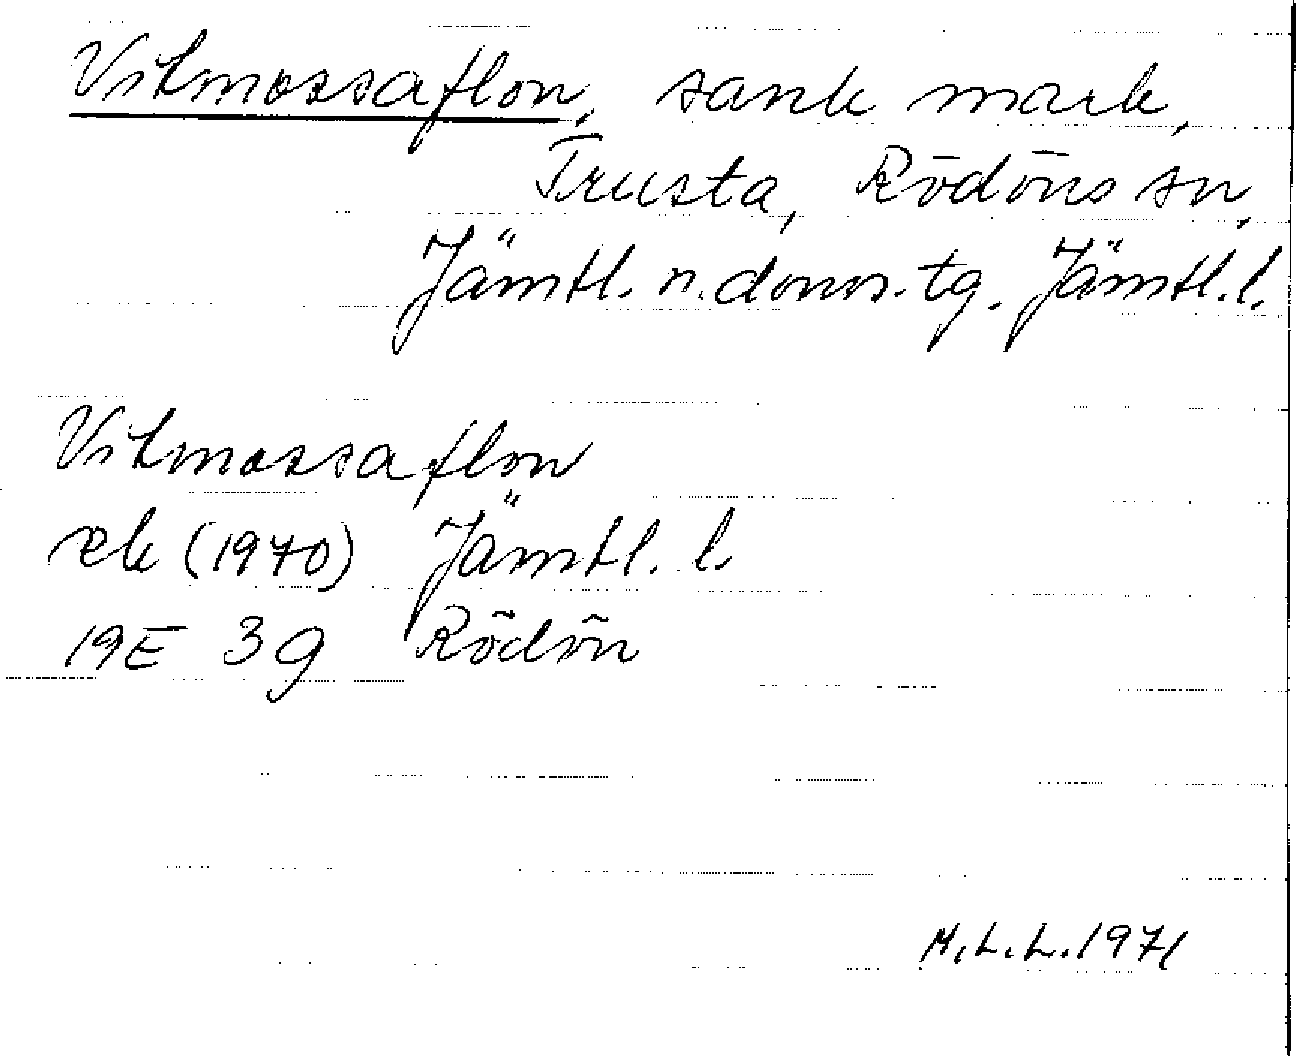 Vitmossaflon, sank mark,
Trusta, Rödöns sn,
Jämtl. n. doms. tg. Jämtl. l.
Vitmossaflon
ek (1970) Jämtl. l.
19E 3g Rödön
M.L.L. 1971